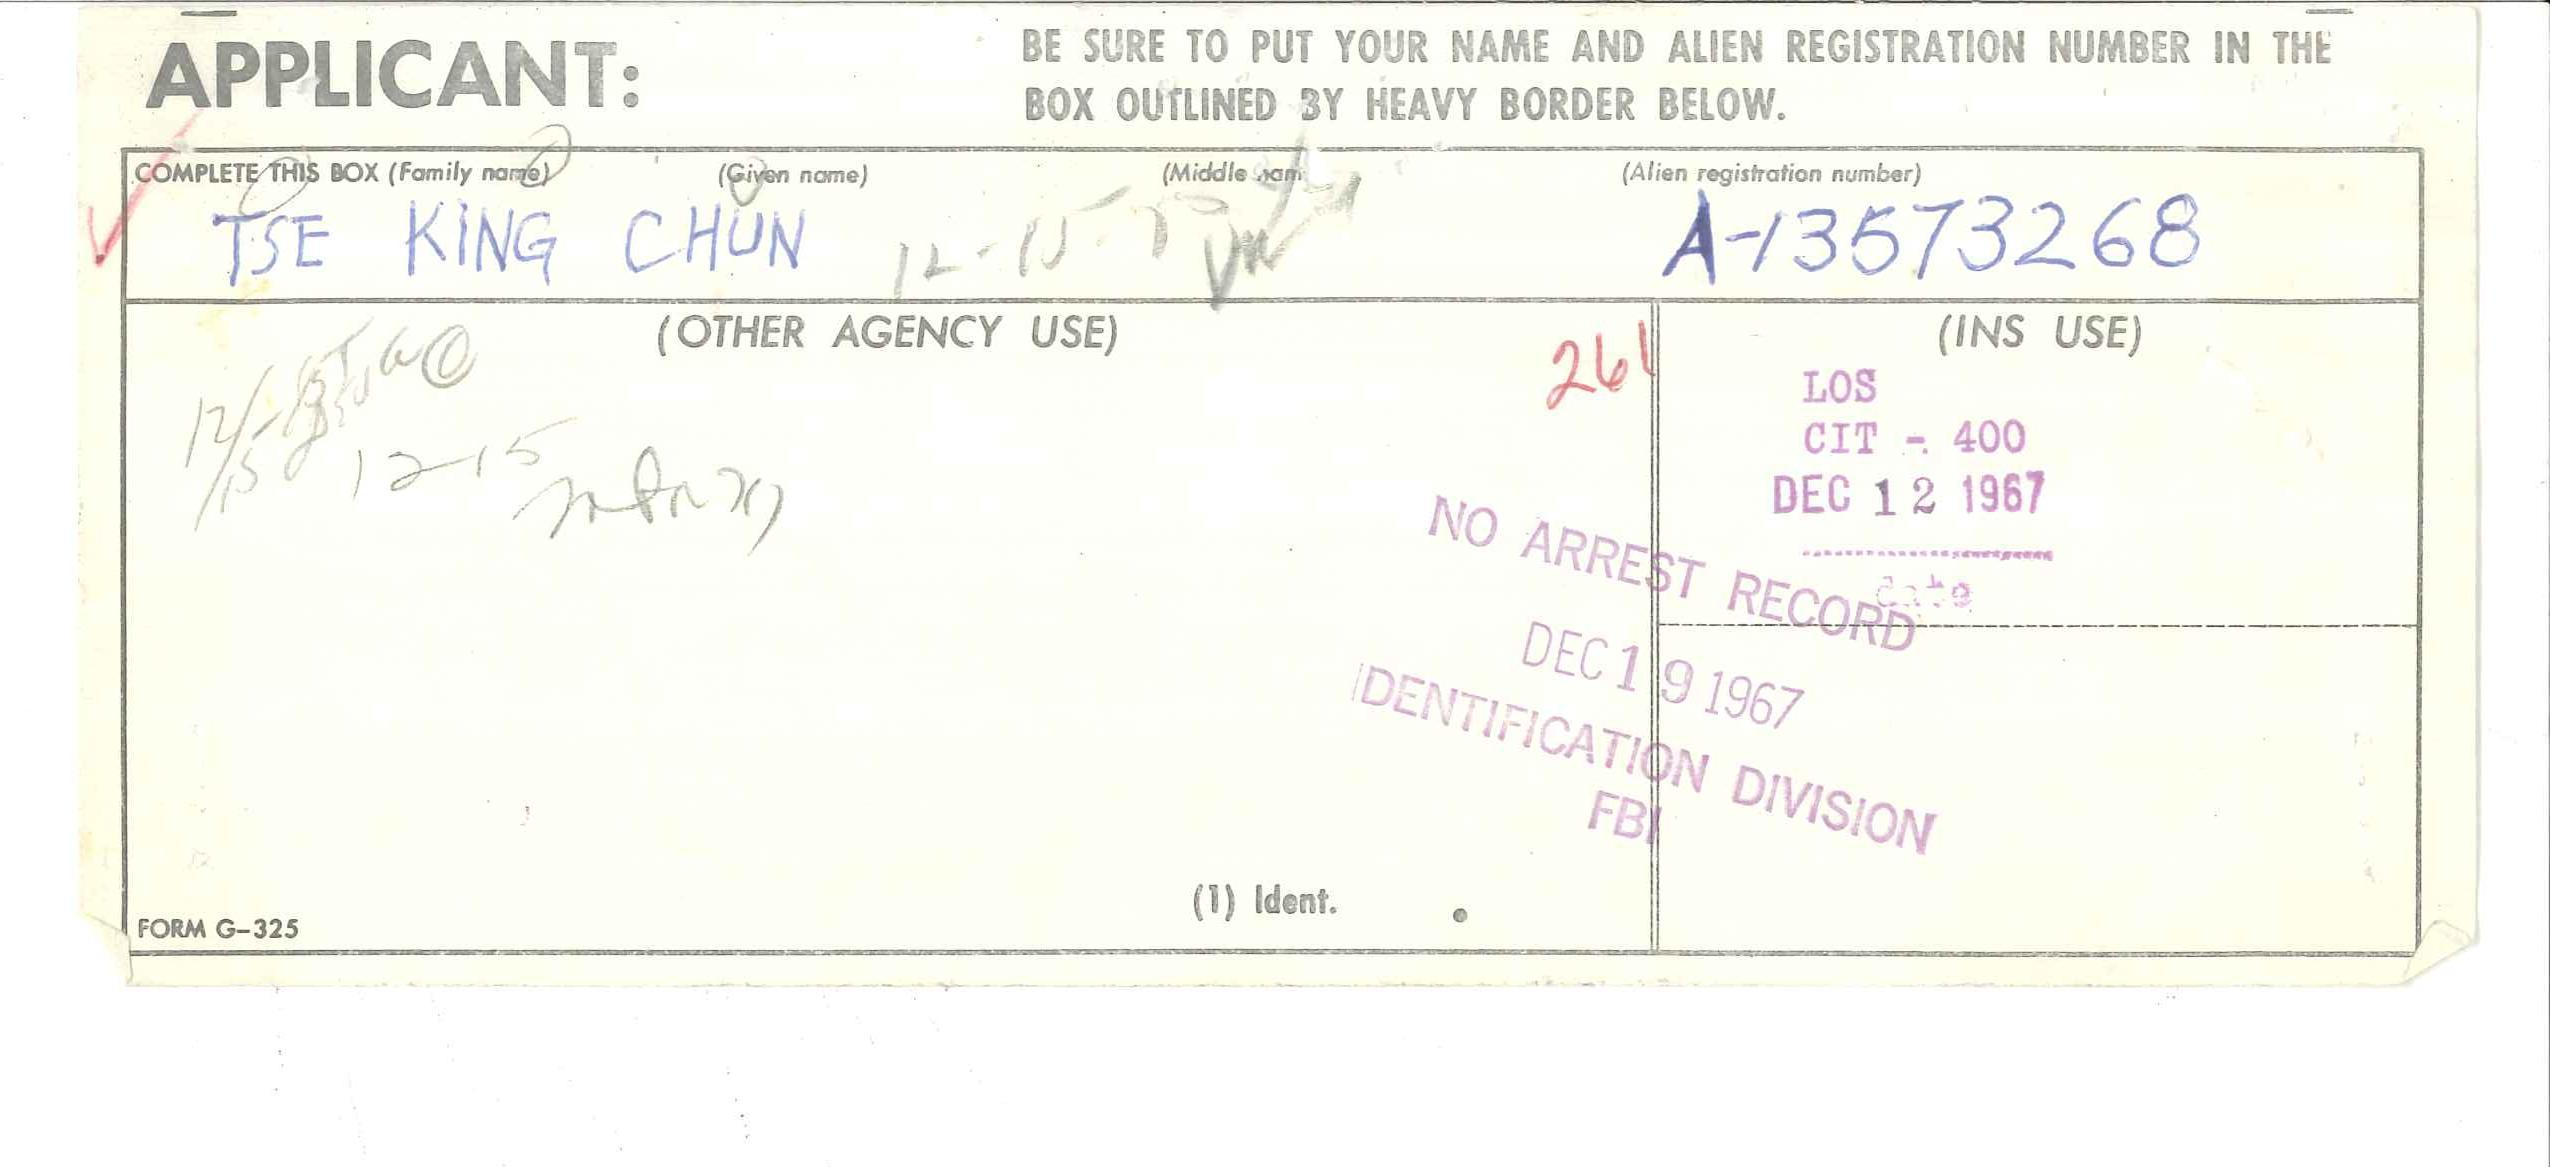 APPLICANT:
BE SURE TO PUT YOUR NAME AND ALIEN REGISTRATION NUMBER IN THE
BOX OUTLINED BY HEAVY BORDER BELOW.
COMPLETE THIS BOX (Family name) (Given name) (Middle nam (Alien registration number)
TSE KING CHUN 12-15- A-13573268
(OTHER AGENCY USE)
261
12-15
(INS USE)
LOS
CIT - 400
DEC 12 1967
date
NO ARREST RECORD
DEC 19 1967
IDENTIFICATION DIVISION
FBI
(1) Ident.
FORM G-325